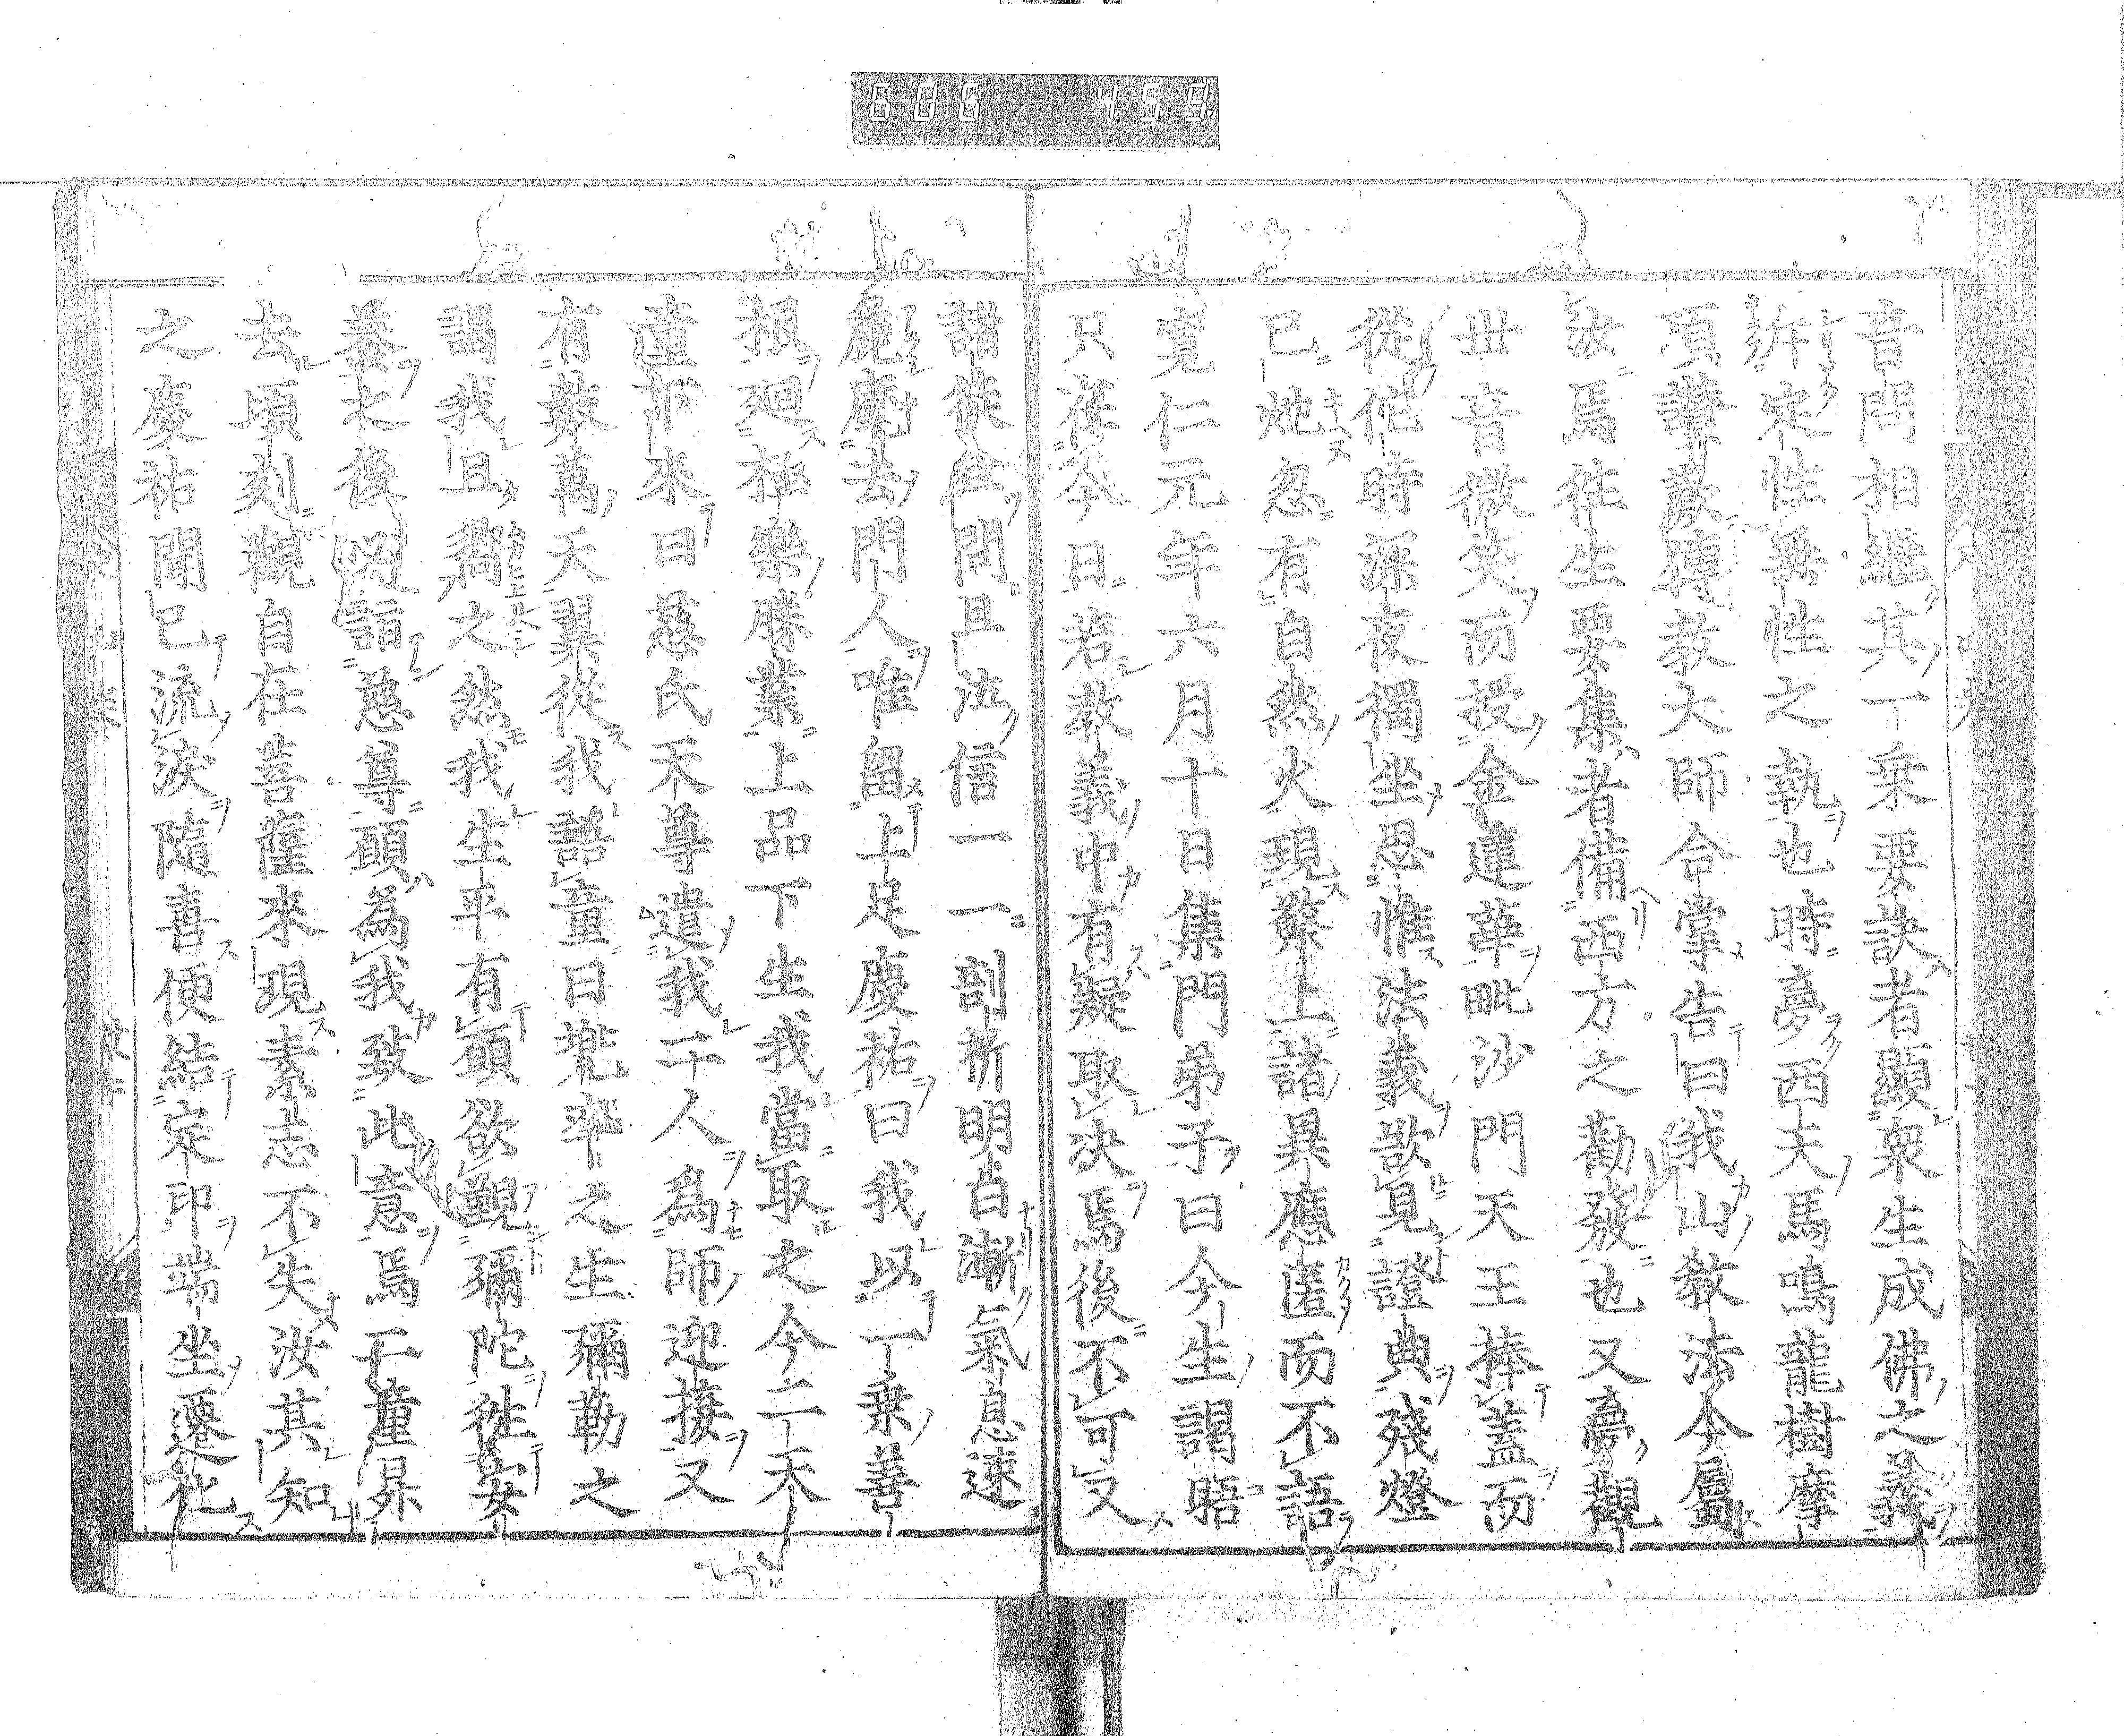 606 459
音問相繼其一乗要訣者顯衆生成佛之義
斥定性無性之執也時夢西天馬鳴龍樹摩
頂讃歎傳教大師合掌告曰我山教法今屬
汝焉往生要集者備西方之勸發也又夢觀
世音微笑而授金蓮華毗沙門天王捧蓋而
從他時深夜獨坐思惟法義欲見證典殘燈
已灺忽有自然火現檠上諸異應匿而不語
寛仁元年六月十日集門弟子曰今生謁晤
只在今日若教義中有疑取决焉後不可又
諸徒住問且泣信一一剖析明白漸氣息速
麾去門人唯留上足慶祐曰我以一乗善
根廻極樂勝業上品下生我當取之今二天
童來曰慈氏天尊遣我二人爲師迎接又
有數萬天翼從我語童曰兠率之生彌勒之
謁我且之然我生平有願欲覲彌陀徃安
養未後詣慈尊願為我致此意焉二童昇
去頃刻觀自在菩薩來現素志不失汝其知
之慶祐聞已流淚隨喜便結定印端坐遷化